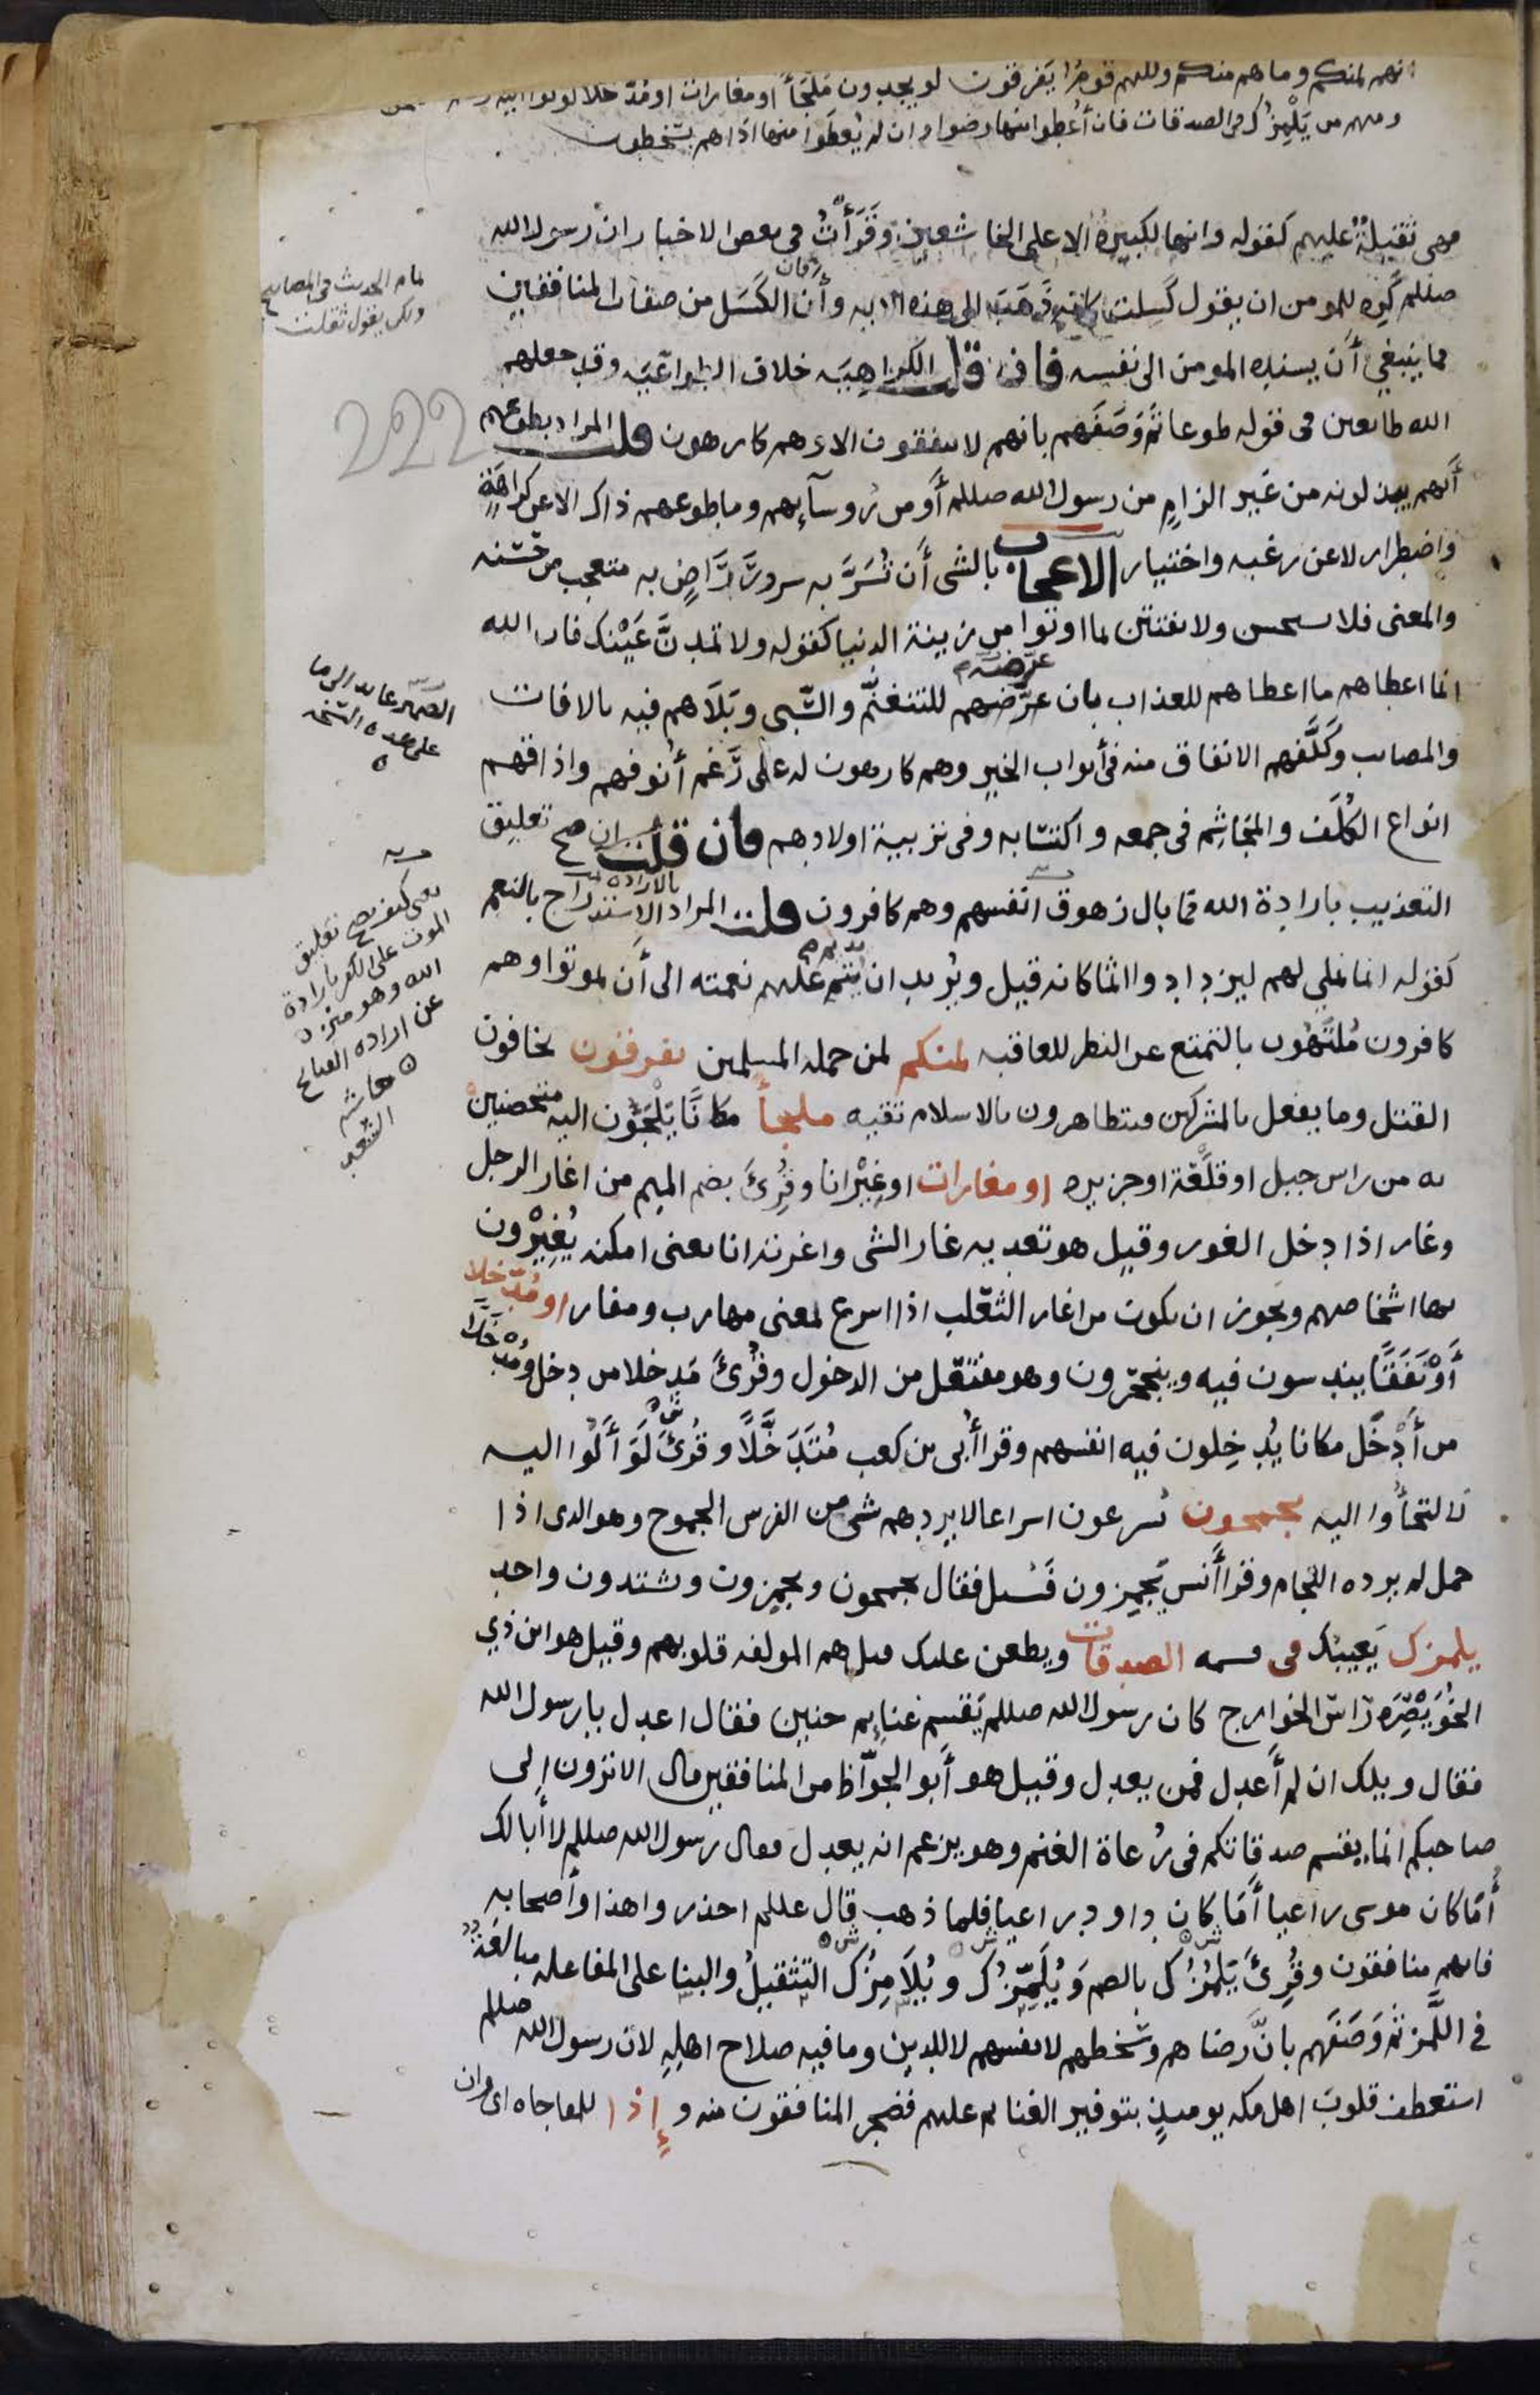 انهم لمنكم وما هم منكم ولكنهم قوم يَفرقون لو يجدون مَلجَأً او مغارات او مُدَّخلا لولوا اليه
ومنهم من يَلْمِزُك فى الصدقات فان أُعطوا منها رضوا وان لم يُعطَوا منها اذا هم يسخطون
فهى ثقيلةٌ عليهم كقوله وانها لكبيرةٌ الا على الخاشعين وَقَرَأْتُ فى بعض الاخبار ان رسول الله
صللم كَرِه للمومن ان يقول كَسِلت كانه ذَهَبَ الى هذه الايه وأن الكَسَل من صفات المنافقين
فما ينبغي أَن يسنده المومن الى نفسه فان قلت الكراهيَه خلاف الطواعَيه وقد جعلهم
الله طائعين فى قوله طوعا ثم وَصَفَهم بانهم لا ينفقون الا وهم كارهون قلت المراد بطوعهم
أَنهم يبذلونه من غَير الزامٍ من رسول الله صللم أَو من رُوسآئهم وما طوعهم ذاك الا عن كراهَةٍ
واضطرار لا عن رغبه واختيار الاعجاب بالشى أَن تُسَرَّ به سرورَ رَاضٍ به متعجب من حُسْنه
والمعنى فلا تستحسن ولا تفتتن بما اوتوا من زينة الدنيا كقوله ولا تمدنَّ عَيْنيك فان الله
انما اعطاهم ما اعطاهم للعذاب بان عرَّضهم للتنغنُّم والسَّبى وبَلَاهم فيه بالافات
والمصايب وكَلَّفهم الانفاق منه فى أبواب الخير وهم كارهون له على رَغم أُنوفهم واذاقهم
انواع الكُلَف والمَجَاشِم فى جمعه واكتسابه وفى تربية اولادهم فان قلت ان صح تعليق
التعذيب بارادة الله فما بال زهوق انفسهم وهم كافرون قلت المراد الاستدراج بالنعم
كقوله انما نملي لهم ليزدادوا اثما كانه قيل ويُريد ان يديم عليهم نعمته الى أَن يموتوا وهم
كافرون مُلْتَهُون بالتمتع عن النظر للعاقبه لمنكم لمن جمله المسلمين يفرقون يخافون
القتل وما يفعل بالمشركين فيتظاهرون بالاسلام تقيه ملجأً مكانًا يَلْجَؤُن اليه متحصنين
به من راس جبل او قلْعَة او جزيره او مغارات او غِيْرانا وقُرِئَ بضم الميم من اغار الرجل
وغار اذا دخل الغور وقيل هو تعديه غار الشى واغرته انا بعنى امكنه يُغِيْرُون
فيها اشخاصهم ويجوز ان يكون من اغار الثعلب اذا اسرع بمعنى مهارب ومفار او مُدَّخلا
أَوْ نَفَقًا يندسون فيه وينجحرون وهو مفتعَل من الدخول وقُرِئَ مَدخلا من دخل ومُدخَلًا
من أَدْخَل مكانا يُدخِلون فيه انفسهم وقرا أُبى بن كعب مُتَدَخَّلًا وقُرِئَ لَوَأَلُوا اليه
لالتجأُوا اليه يجمحون يُسرعون اسراعا لا يردهم شى من الفرس الجموح وهو الذى اذا
حمل لم يرده اللجام وقرا أَنس يَجمِزون فَسُئل فقال يجمحون ويجمزون ويشتدون واحد
يلمزك يَعِيبك فى قسمه الصدقات ويطعن عليك قيل هم المولفه قلوبهم وقيل هو ابن ذي
الخُوَيْصِرَه رَاسُ الخوارج كان رسول الله صللم يَقسم غنايم حنين فقال اعدل يا رسول الله
فقال ويلك ان لم أَعدل فمن يعدل وقيل هو أَبو الجوّاظ من المنافقين قال الا ترون إلى
صاحبكم انما يقسم صدقاتكم فى رُعاة الغنم وهو يزعم انه يعدل فقال رسول الله صللم لا أبا لك
أَمَا كان موسى راعيا أَمَا كان داود راعيا فلما ذهب قال عللم احذروا هذا وأصحابه
فانهم منافقون وقُرِئَ يَلمُزُك بالضم وَيُلَمِّزُك ويُلَامِزُك التثقيلُ والبنا على المفاعله مبالغةٌ
فى اللَّمز ثم وَصَفَهم بانَّ رضاهم وسُخطهم لانفسهم لا للدين وما فيه صلاح اهلِهِ لان رسول الله صللم
استعطف قلوبَ اهل مكه يوميذٍ بتوفير الغنايم عليهم فضجر المنافقون منه وإذا للمفاجاه اى وان
تمام الحديث فى المصابيح
ولكن يقول ثقلت
222
الضمير عايد الى ما
على هذه النسخه
يعنى كيف يصح تعليق
الموت على الكفر بارادة
الله وهو منزه
عن اراده القبايح